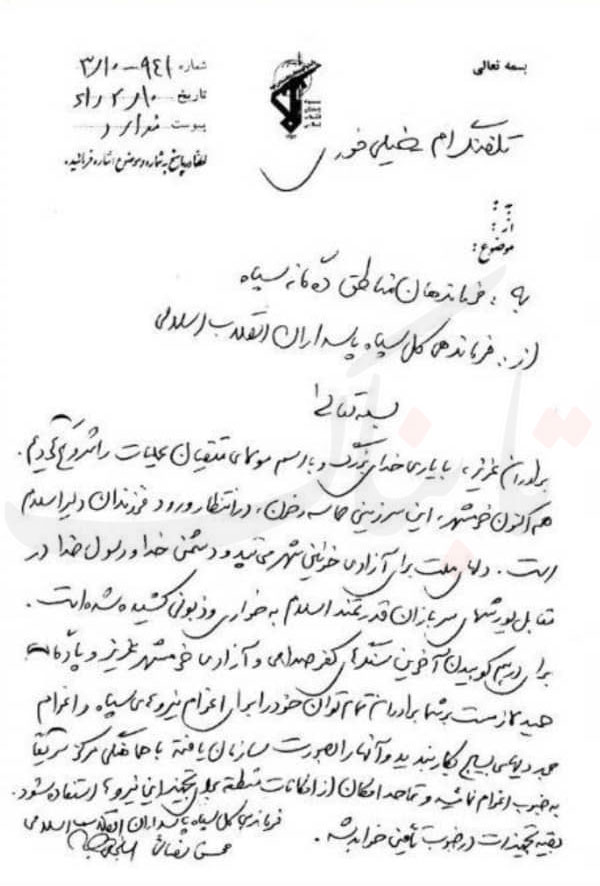 بسمه تعالی
شماره ۹۴۱-۳/۱۰
تاریخ ۶۱/۲/۱۰
پیوست ندارد
لطفا در پاسخ به شماره و موضوع اشاره فرمائید.
تلفنگرام خیلی فوری
به :
از :
موضوع :
به : فرماندهان مناطق ده گانه سپاه
از : فرماندهی کل سپاه پاسداران انقلاب اسلامی
بسمه تعالی
برادران عزیز، با یاری خدای بزرگ و با رسم مولای متقیان عملیات را شروع کردیم.
هم اکنون خرمشهر، این سرزمین حماسه و خون، در انتظار ورود فرزندان دلیر اسلام
است. دلهای ملت برای آزادی خونین شهر می‌تپد و دشمن خدا و رسول خدا در
مقابل یورشهای سربازان قدرتمند اسلام به خواری و ذبونی کشیده شده است.
برای درهم کوبیدن آخرین سنگرهای کفر صدامی و آزادی خرمشهر عزیز و پادگان
حمید لازمست بر شما برادران تمام توان خود را برای اعزام نیروهای سپاه و اعزام
نیروهای بسیج بکار بندید و آنها را بصورت سازمان یافته با هماهنگی مرکز سریعاً
به جنوب اعزام نمائید و تا حد امکان از امکانات منطقه برای تجهیز این نیروها استفاده شود.
بقیه تجهیزات در جنوب تأمین خواهد شد.
فرماندهی کل سپاه پاسداران انقلاب اسلامی
محسن رضائی
تابناک